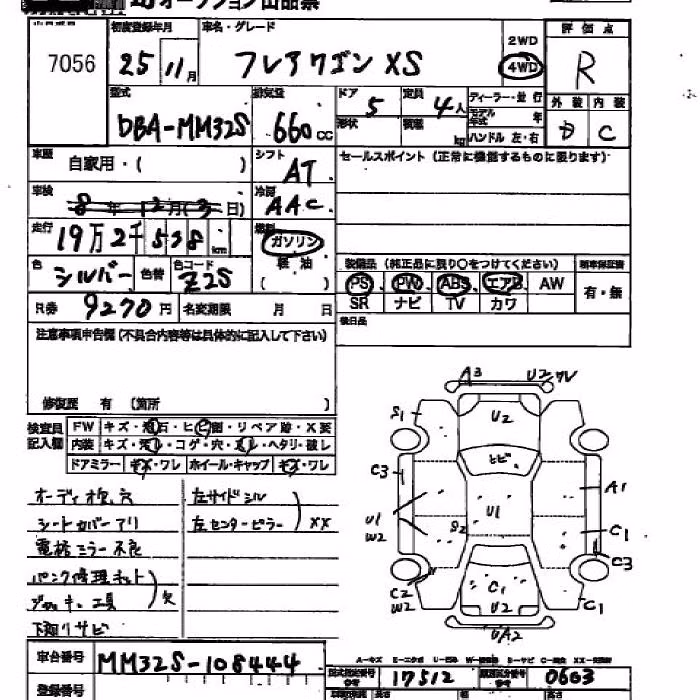 オークション出品票
出品票No.
初度登録年月
車名・グレード
評価点
7056
25年 11月
フレアワゴン XS
2WD
4WD
R
型式
排気量
ドア 5
定員 4人
ディーラー・並行
外装 内装
DBA-MM32S
660cc
形状
積載 kg
モデル年式 年
ハンドル 左・右
D C
車歴
自家用・( )
シフト
AT
セールスポイント (正常に機能するものに限ります)
車検
8年 12月(3日)
冷房
AAC
走行
19万2千538km
燃料
ガソリン
軽油
( )
色
シルバー
色替
色コード
Z2S
装備品 (純正品に限り○をつけてください)
新車保証書
PS PW ABS エアB AW
有・無
SR ナビ TV カワ
R券 9270円
名変期限 月 日
後日品
注意事項申告欄 (不具合内容等は具体的に記入して下さい)
修復歴 有 (箇所 )
検査員記入欄
FW キズ・飛石・ヒビ割・リペア跡・X要
内装 キズ・汚レ・コゲ・穴・スレ・ヘタリ・破レ
ドアミラー キズ・ワレ ホイール・キャップ キズ・ワレ
オーディオ欠、穴
左サイドシル
シートカバーアリ
左センターピラー
XX
電格ミラー不良
パンク修理キット
ジャッキ、工具
欠
下廻りサビ
A3 U2ワレ
S1 U2
トビ
C3 A1
U1 W2 S2 U1 C1
C3
C2 W2 C1 U2 C1
UA2
車台番号
MM32S-108444
A-キズ E-エクボ U-凹み W-補修跡 S-サビ C-腐食 XX-交換済
型式指定番号
17512
類別区分番号
0603
登録番号